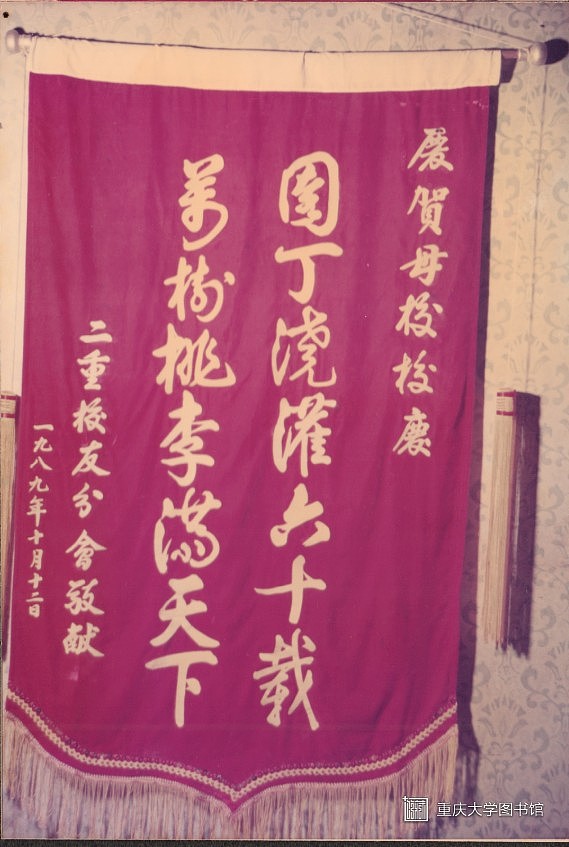 慶賀母校校慶
園丁澆灌六十載
萬樹桃李滿天下
二重校友分會敬献
一九八九年十月十二日
重庆大学图书馆